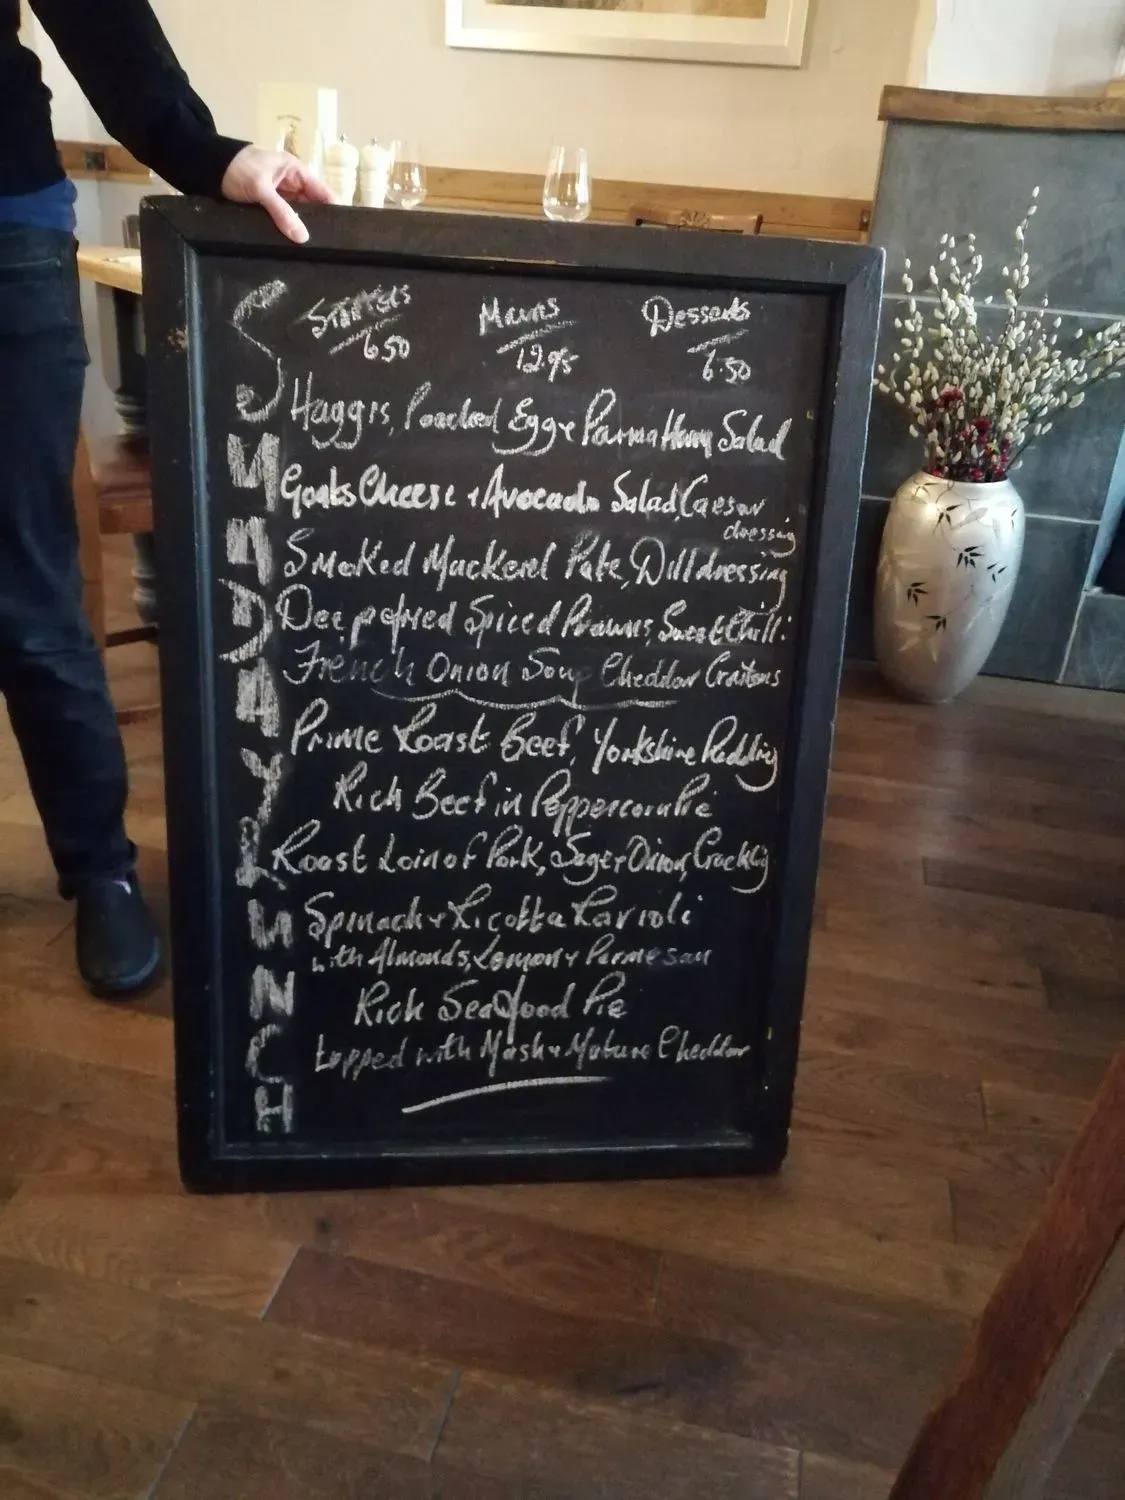 SUNDAY LUNCH
Starters Mains Desserts
6.50 12.95 6.50
Haggis, Poached Egg + Parma Ham Salad
Goats Cheese + Avocado Salad, Caesar
dressing
Smoked Mackerel Pate, Dill dressing
Deepfried Spiced Prawns, Sweet Chilli
French Onion Soup Cheddar Croutons
Prime Roast Beef, Yorkshire Pudding
Rich Beef in Peppercorn Pie
Roast Loin of Pork, Sage + Onion, Crackling
Spinach + Ricotta Ravioli
with Almonds, Lemon + Parmesan
Rich Seafood Pie
topped with Mash + Mature Cheddar